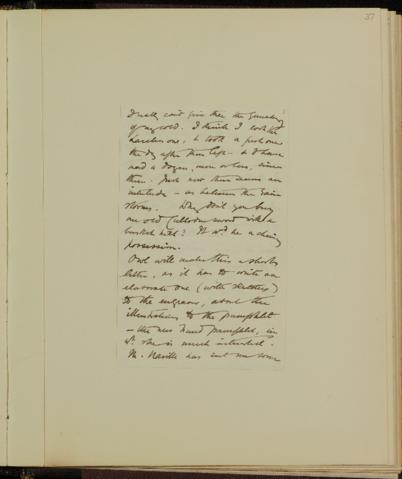 37
I really can't give thee the
of my cold. I think I took the
one; & took a fresh one
the day after thou left - & I have
had a dozen, more or less, since
then. Just now there seems an
interlude - as between the rain
storms. Why don't you buy
an old sword with a
basket hilt? It wd. be a
possession.
Owl will make this a short
letter, as it has to write an
elaborate one (with sketches)
to the engraver, about the
illustrations to the pamphlet
- the new hand pamphlet, in
wh. she is much interested.
M. Naville has sent me some